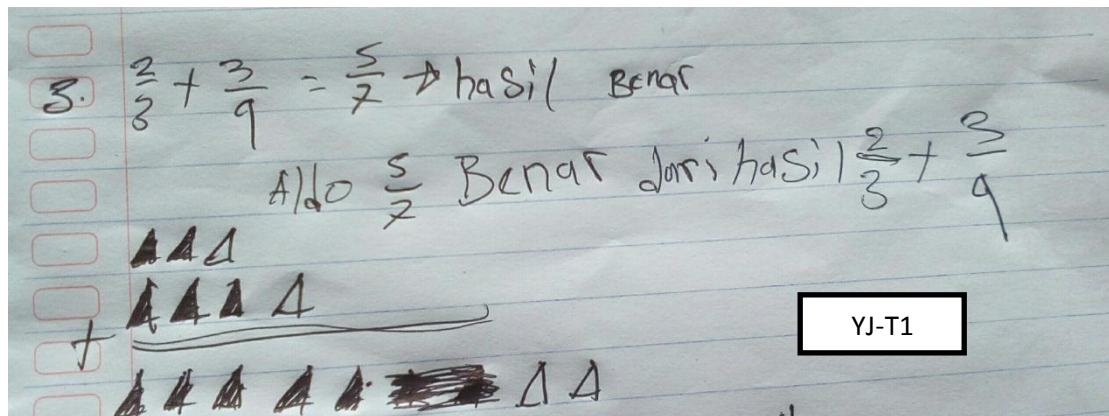 3. 2/3 + 3/4 = 5/7 → hasil Benar
Aldo 5/7 Benar dari hasil 2/3 + 3/4
+
YJ-T1